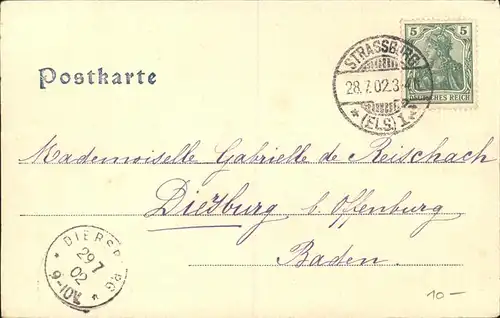 Postkarte
STRASSBURG
28.7.02.3-4N
* (ELS) 1 *
5 5
DEUTSCHES REICH
Mademoiselle Gabrielle de Reischach
Diersburg b. Offenburg
Baden.
DIERSBURG
29 7
02
9-10V.
10-